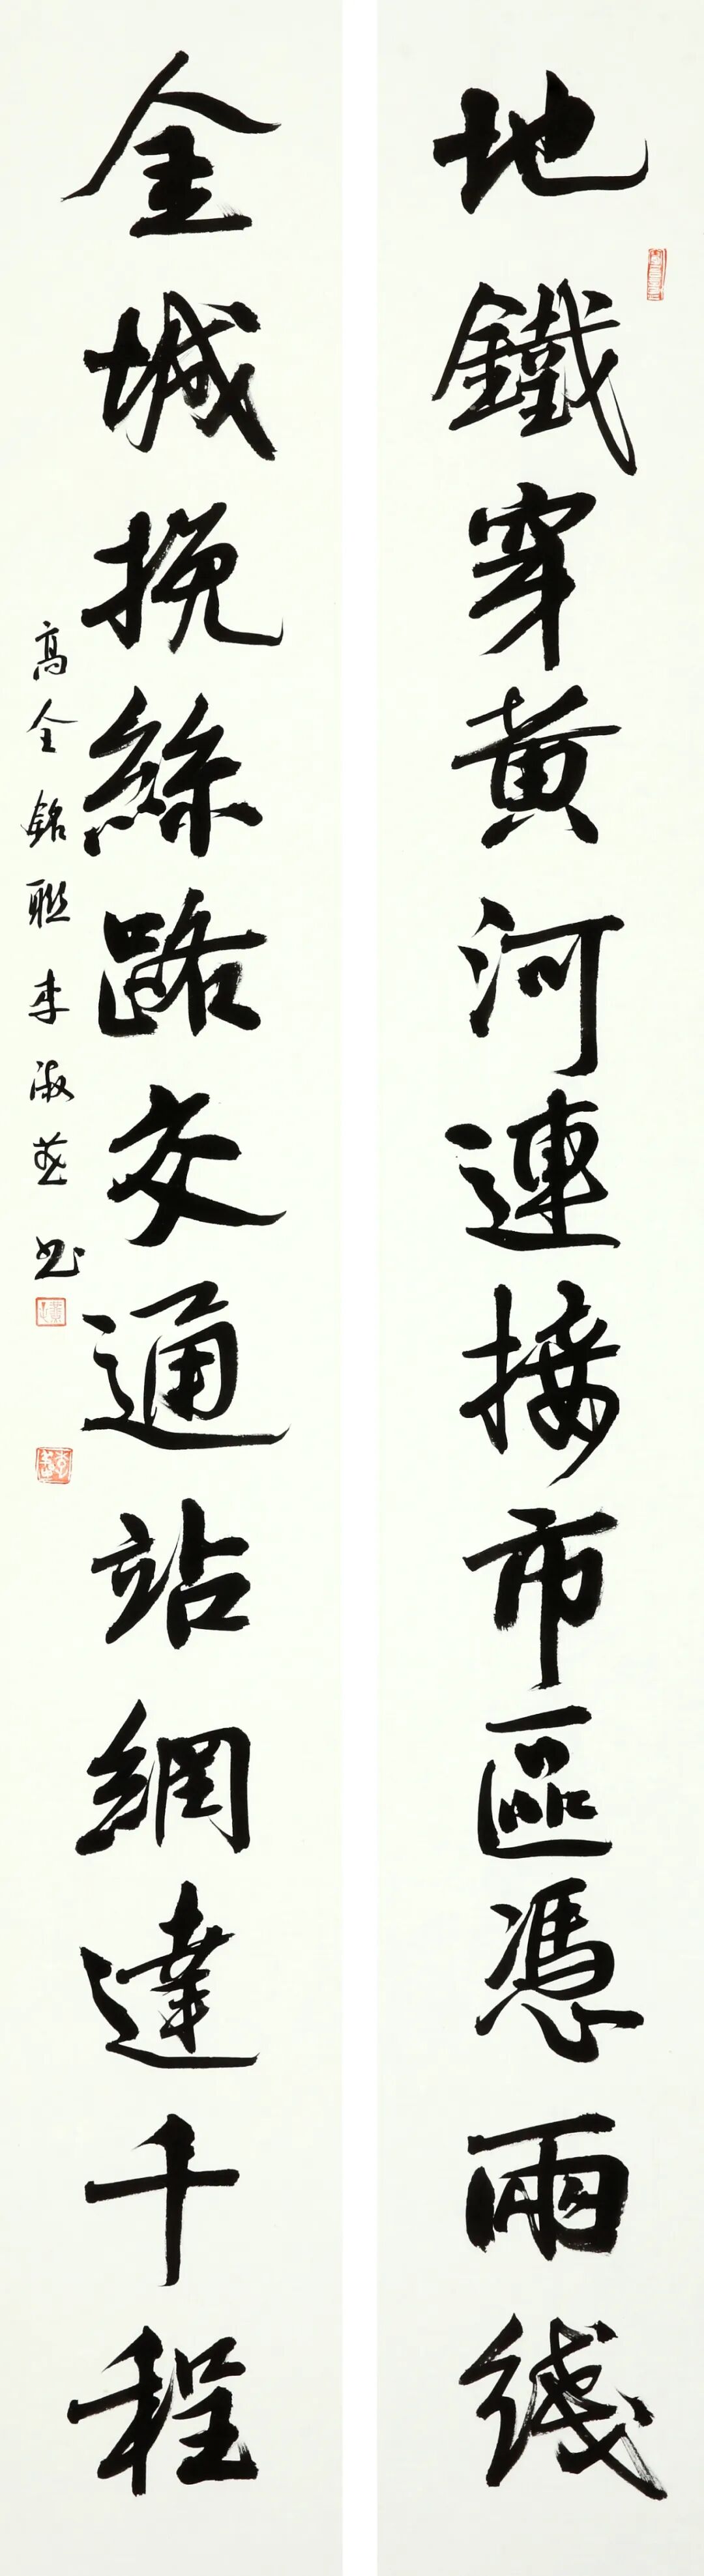 地鐵穿黄河連接市區憑兩綫
金城挽絲路交通站網達千程
高全銘聯 李淑芸书